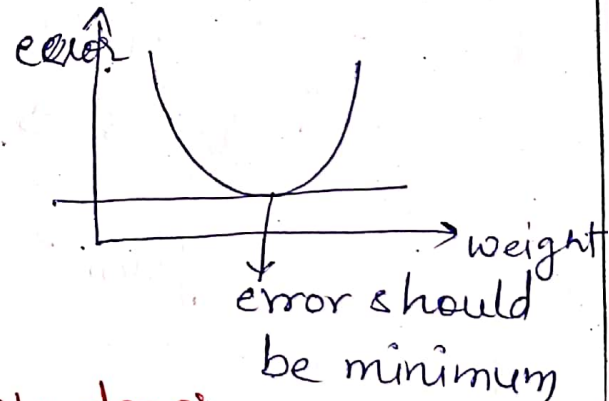 error
weight
error should
be minimum